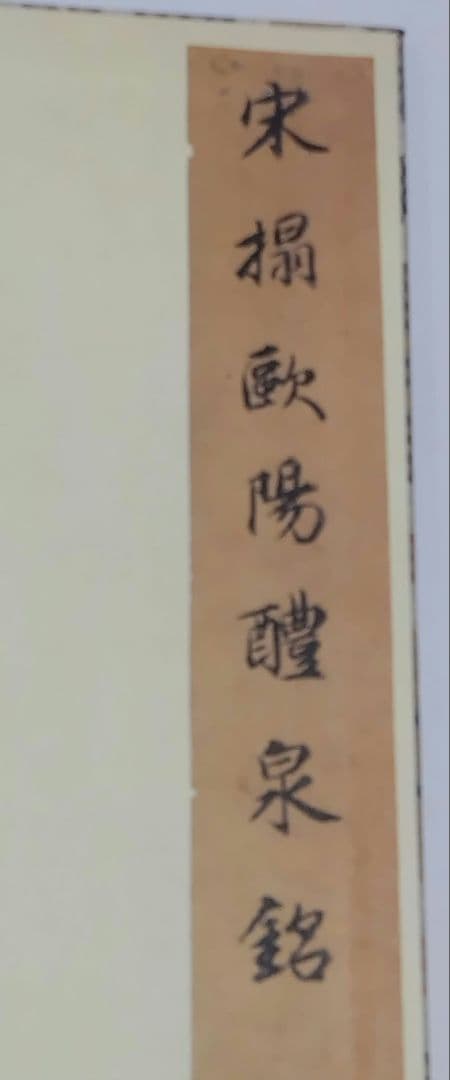 宋搨歐陽醴泉銘